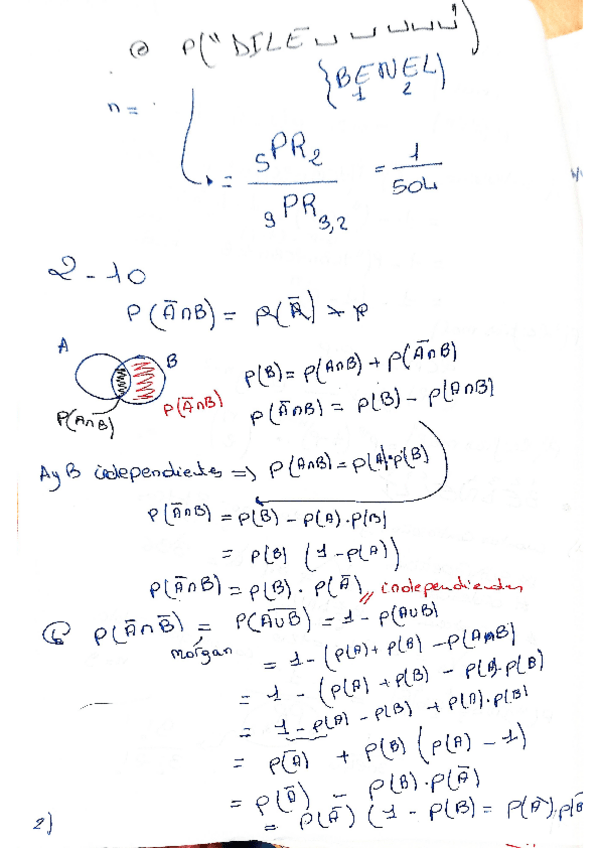 @ P("DILE␣␣␣␣␣")
{BENEL}
1 2
n =
= 5PR2 / 9PR3,2 = 1/504
2-10
P(Ā∩B) = P(Ā) * P
A
B
P(B) = P(A∩B) + P(Ā∩B)
P(Ā∩B)
P(A∩B)
P(Ā∩B) = P(B) - P(A∩B)
A y B independientes => P(A∩B) = P(A)·P(B)
P(Ā∩B) = P(B) - P(A)·P(B)
= P(B) (1-P(A))
P(Ā∩B) = P(B) · P(Ā) // independientes
b P(Ā∩B̄) = P(A∪B)̅ = 1 - P(A∪B)
morgan
= 1 - (P(A) + P(B) - P(A∩B)
= 1 - (P(A) + P(B) - P(A)·P(B)
= 1 - P(A) - P(B) + P(A)·P(B)
= P(Ā) + P(B) (P(A) - 1)
= P(Ā) - P(B)·P(Ā)
= P(Ā) (1 - P(B) = P(Ā)·P(B̄
2)